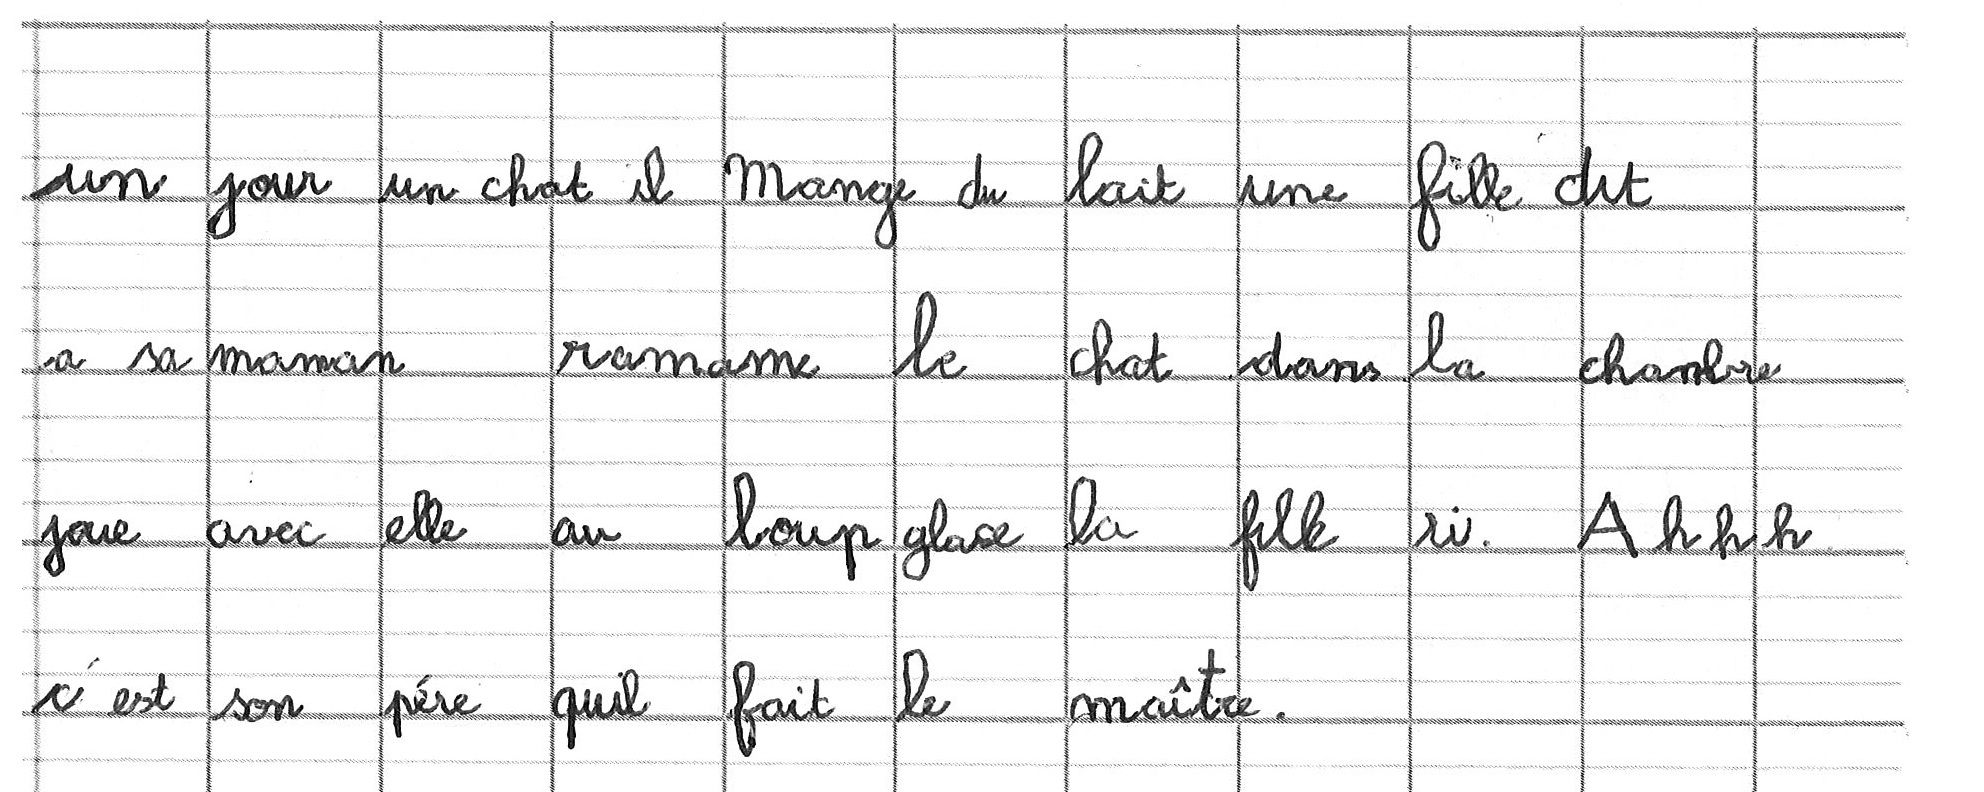 un jour un chat il Mange du lait une fille dit
a sa maman ramame le chat dans la chanbre
joue avec elle au loup glase la fille ri. Ahhh
c'est son pére quil fait le maître.